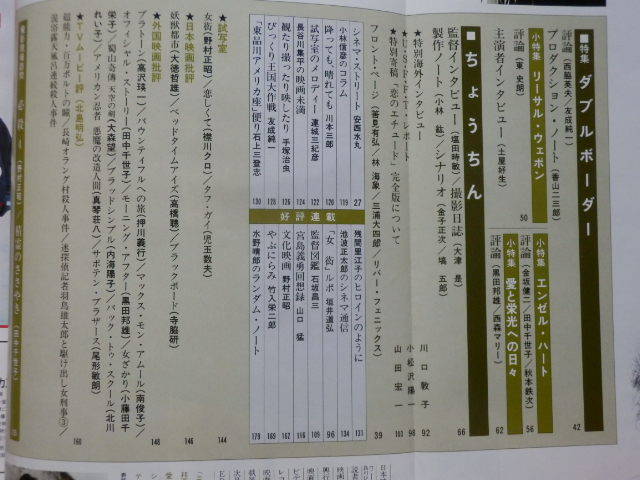 ■特集 ダブルボーダー 42
評論(西脇英夫/友成純一)
プロダクション・ノート(香山二三郎)
小特集 リーサル・ウェポン 50
評論(東 史朗)
主演者インタビュー(土屋好生)
小特集 エンゼル・ハート 56
評論(金坂健二/田中千世子/秋本鉄次)
小特集 愛と栄光への日々 62
評論(黒田邦雄/西森マリー)
■ちょうちん 66
監督インタビュー(塩田時敏)/撮影日誌(大津 是)
製作ノート(小林 紘)/シナリオ(金子正次/塙 五郎)
★特別海外インタビュー 川口敦子 92
★USFFTレポート 小松沢陽一 98
★特別寄稿「恋のエチュード」完全版について 山田宏一 103
フロント・ページ(香見有弘/林 海象/三浦大四郎/リバー・フェニックス) 39
シネマ・ストリート 安西水丸 27
小林信彦のコラム 119
降っても、晴れても 川本三郎 120
試写室のメロディー 連城三紀彦 122
長谷川集平の映画未満 124
観たり撮ったり映したり 手塚治虫 126
びっくり王国大作戦 友成純一 128
「東品川アメリカ座」便り 石上三登志 130
好評連載
残間里江子のヒロインのように 131
池波正太郎のシネマ通信 134
「女 街」ルポ 垣井道弘 96
監督図鑑 石坂昌三 109
宮島義勇回想録 山口 猛 110
文化映画 野村正昭 116
やぶにらみ 竹入栄二郎 169
水野晴郎のランダム・ノート 179
★試写室 144
女衒(野村正昭)/恋しくて(襟川クロ)/タフ・ガイ(児玉数夫)
★日本映画批評 146
妖獣都市(大徳哲雄)/ベッドタイムアイズ(高橋聰)/ブラックボード(寺脇研)
★外国映画批評 148
プラトーン(高沢瑛一)/バウンティフルへの旅(押川義行)/マックス・モン・アムール(南俊子)/
オフィシャル・ストーリー(田中千世子)/モーニング・アフター(黒田邦雄)/女ざかり(小藤田千
栄子)/蜀山奇傳 天空の剣(大森望)/ブラッドシンプル(内海陽子)/バック・トゥ・スクール(北川
れい子)/アメリカン忍者 悪魔の改造人間(真琴荘八)/サボテン・ブラザース(尾形敏朗)
★TVムービー評(北島明弘) 160
超能力・百万ボルトの瞳/長崎オランダ村殺人事件/迷探偵記者羽鳥雄太郎と駆け出し女刑事③/
混浴露天風呂連続殺人事件
必殺4(野村正昭)/精霊のささやき(田中千世子)